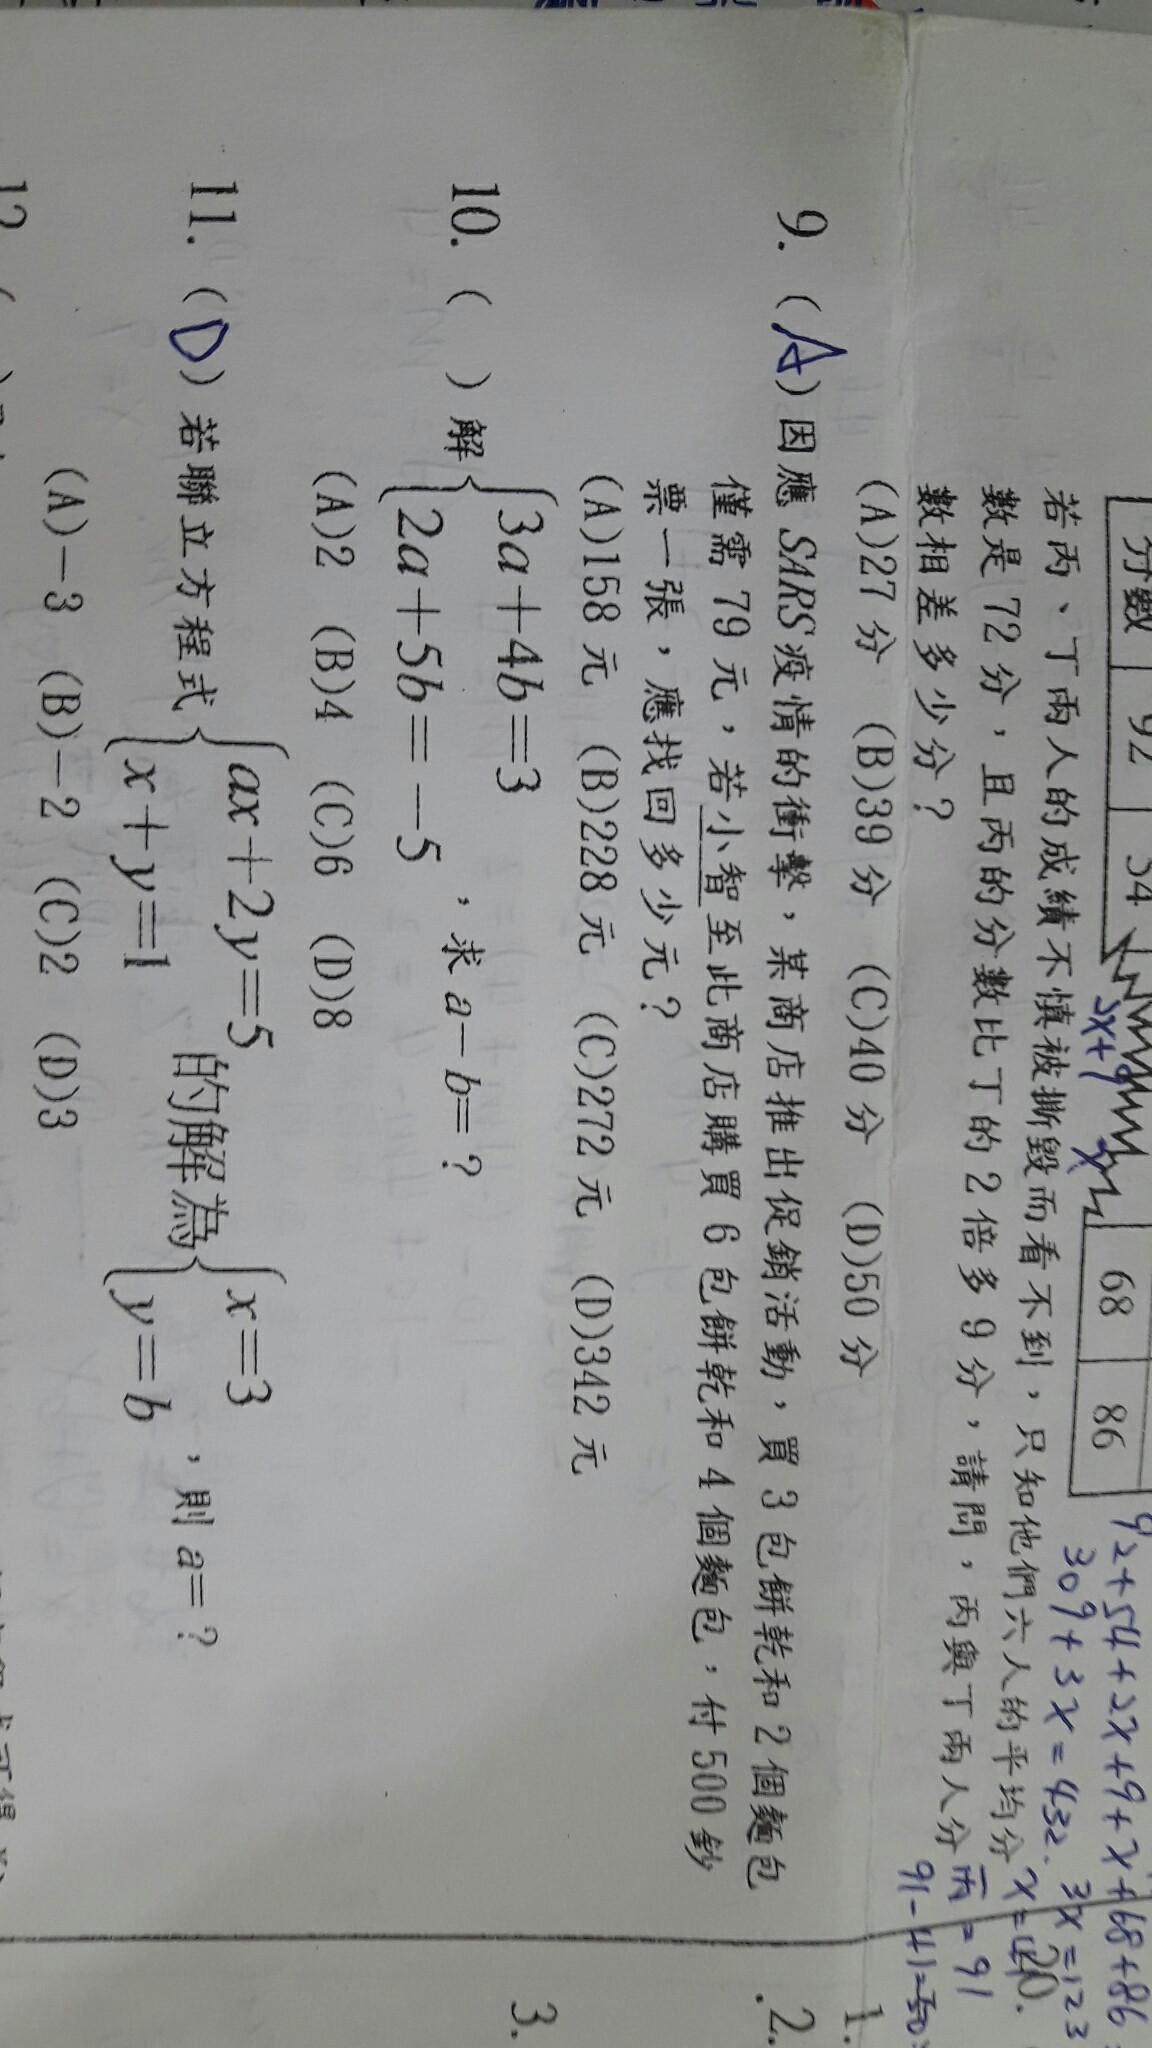 分數 92 54 68 86
2x+9 x
92+54+2x+9+x+68+86
309+3x=432. 3x=123
若丙、丁兩人的成績不慎被撕毀而看不到，只知他們六人的平均分
數是 72 分，且丙的分數比丁的 2 倍多 9 分，請問，丙與丁兩人分
丙=91
數相差多少分？
91-41=50
(A)27 分 (B)39 分 (C)40 分 (D)50 分
1.
9. (A) 因應 SARS 疫情的衝擊，某商店推出促銷活動，買 3 包餅乾和 2 個麵包
2.
僅需 79 元，若小智至此商店購買 6 包餅乾和 4 個麵包，付 500 鈔
票一張，應找回多少元？
(A)158 元 (B)228 元 (C)272 元 (D)342 元
3.
10. ( ) 解 {3a+4b=3
2a+5b=-5 ，求 a-b=？
(A)2 (B)4 (C)6 (D)8
11. (D) 若聯立方程式 {ax+2y=5
x+y=1 的解為 {x=3
y=b ，則 a=？
(A)-3 (B)-2 (C)2 (D)3
12. (